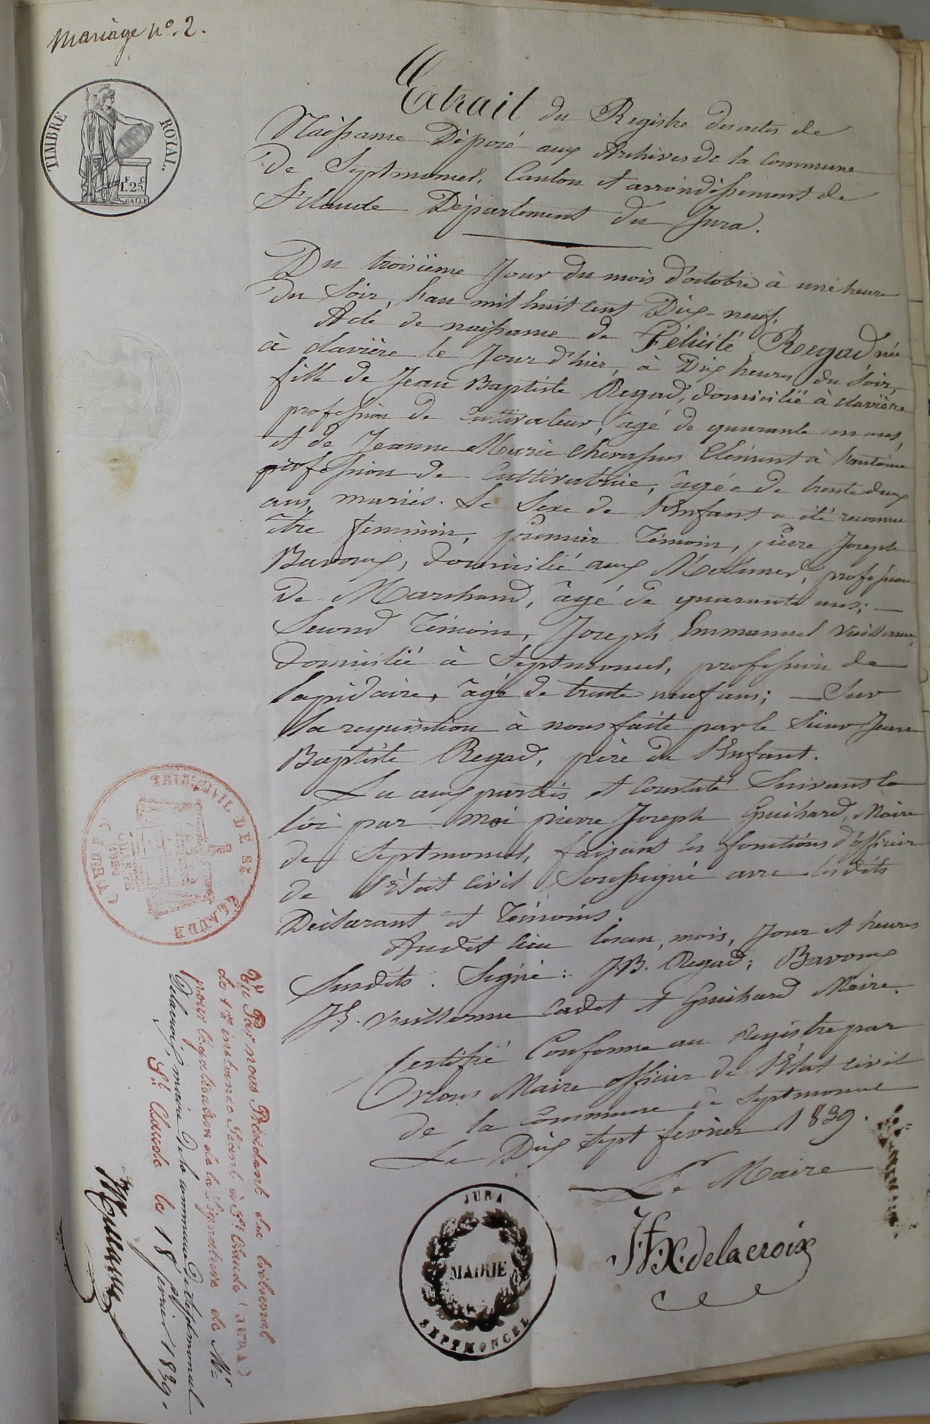 Mariage n°. 2.
TIMBRE ROYAL.
1F. 25c
Extrait du Registre des actes de
Naissance Déposé aux Archives de la Commune
de Septmoncel, Canton et arrondissement de
St Claude Département du Jura.
Du troisième Jour du mois d'octobre à une heure
du Soir, l'an mil huit cent Dix neuf,
Acte de naissance de Félicité Regad née
à clavière le Jour d'hier, à Dix heures du Soir,
fille de Jean Baptiste Regad, domicilié à clavière
profession de Cultivateur, âgé de quarante ans,
et de Jeanne Marie Clément à
profession de Cultivatrice, âgée de trente deux
ans, mariés. Le Sexe de l'Enfant a été reconnu
être feminin, premier Témoin, pierre Joseph
Bavoux, domicilié aux profession
de Marchand, âgé de quarante ans; —
Second Témoin, Joseph Emmanuel Vuillerme,
domicilié à Septmoncel, profession de
lapidaire, âgé de trente neuf ans; — Sur
la requisition à nous faite par le Sieur Jean
Baptiste Regad, père de l'Enfant.
Lu aux parties et Constaté Suivant la
loi par moi pierre Joseph Guichard, Maire
de Septmoncel, faisant les fonctions d'officier
de l'état civil Soussigné avec lesdits
Déclarant et Témoins.
Audit lieu les an, mois, Jour et heures
Susdits. Signé: JB. Regad; Bavoux
JE. Vuillerme Cadet et Guichard Maire.
Certifié Conforme au Registre par
Nous Maire officier de l'État civil
de la Commune de Septmoncel
Le Dix Sept fevrier 1839.
Le Maire
JFX. delacroix
JURA
MAIRIE
SEPTMONCEL
TRIB. CIVIL DE ST CLAUDE (JURA)
Vu Par nous Président du tribunal
de 1re instance Séant à St Claude (Jura)
pour légalisation de la Signature de Mr
Delacroix maire de la commune de Septmoncel
St Claude le 18 fevrier 1839.